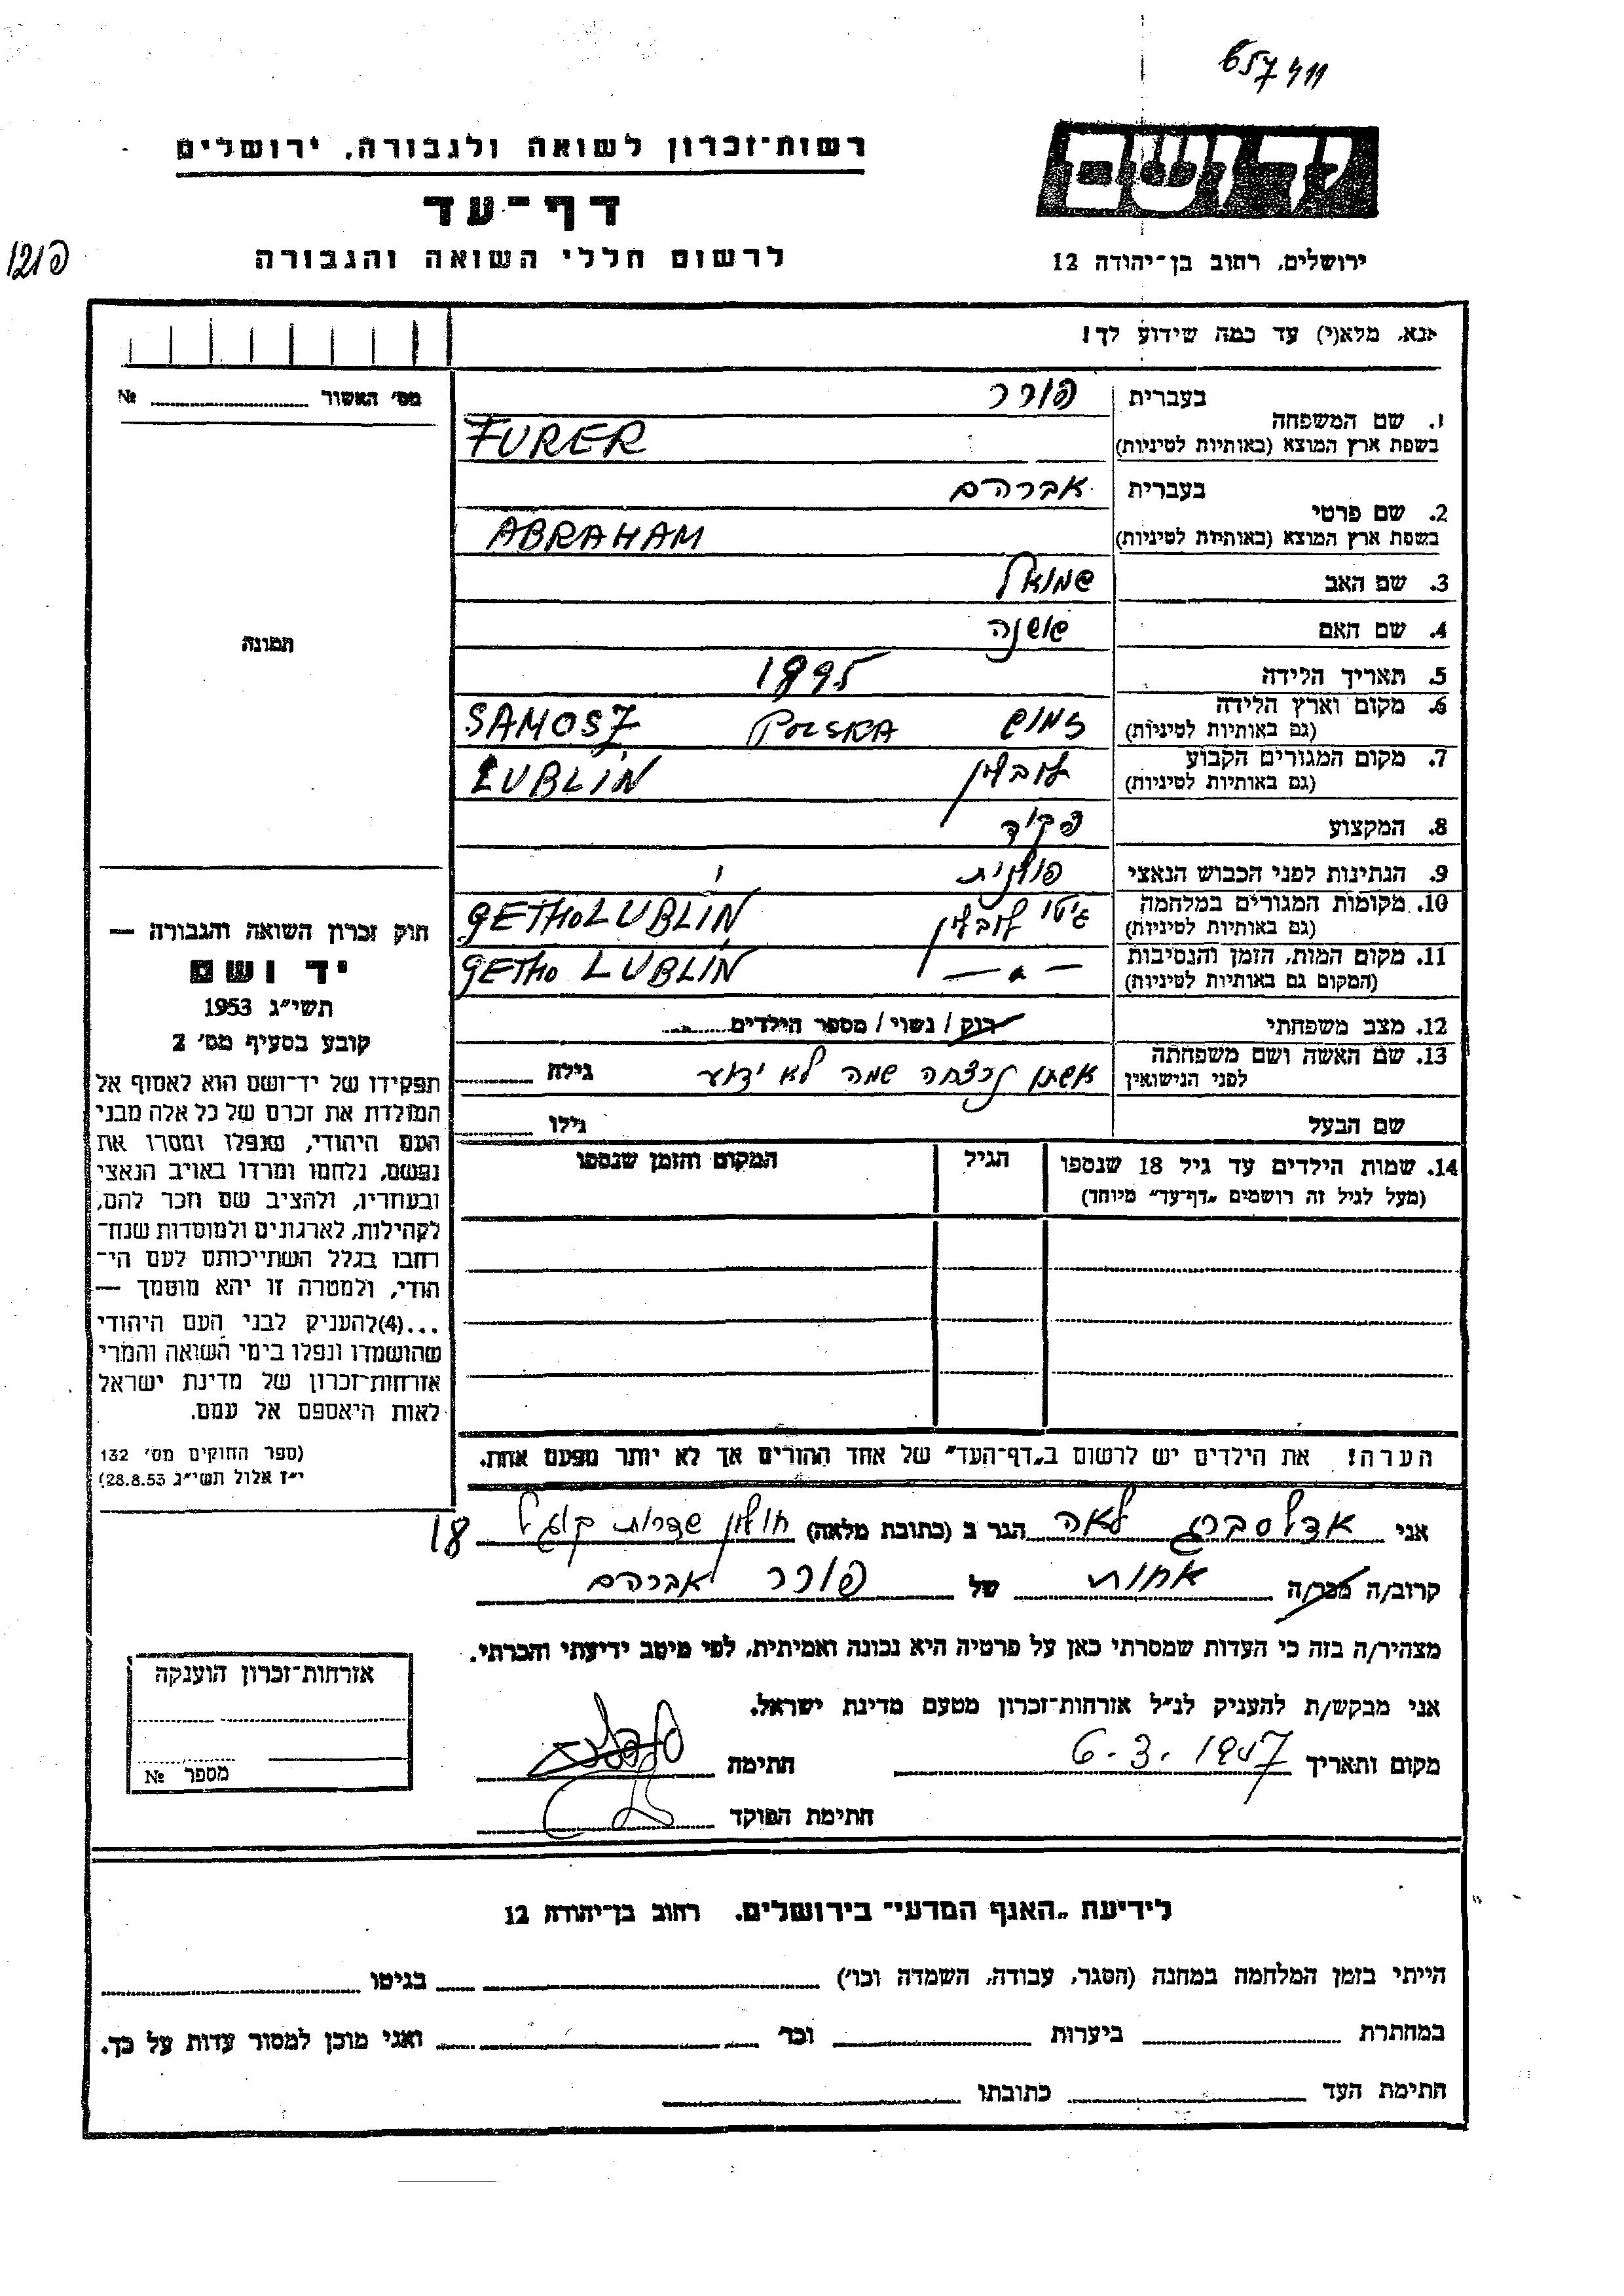 657411
רשות־זכרון לשואה ולגבורה, ירושלים
דף־עד
לרשום חללי השואה והגבורה
יד ושם
ירושלים, רחוב בן־יהודה 12
אנא, מלא(י) עד כמה שידוע לך!
מס׳ האשור № 
1. שם המשפחה
בעברית פורר
בשפת ארץ המוצא (באותיות לטיניות) FURER
2. שם פרטי
בעברית אברהם
בשפת ארץ המוצא (באותיות לטיניות) ABRAHAM
3. שם האב שמואל
4. שם האם שושנה
5. תאריך הלידה 1895
6. מקום וארץ הלידה
(גם באותיות לטיניות) זמוש POLSKA SAMOSZ
7. מקום המגורים הקבוע
(גם באותיות לטיניות) לובלין LUBLIN
8. המקצוע פקיד
9. הנתינות לפני הכבוש הנאצי פולנית
10. מקומות המגורים במלחמה
(גם באותיות לטיניות) גיטו לובלין GETHO LUBLIN
11. מקום המות, הזמן והנסיבות
(המקום גם באותיות לטיניות) — " — GETHO LUBLIN
12. מצב משפחתי רוק / נשוי / מספר הילדים
13. שם האשה ושם משפחתה
לפני הנישואין אשתו נרצחה שמה לא ידוע גילה
שם הבעל גילו
14. שמות הילדים עד גיל 18 שנספו הגיל המקום והזמן שנספו
(מעל לגיל זה רושמים „דף־עד” מיוחד)
הערה! את הילדים יש לרשום ב„דף־העד” של אחד ההורים אך לא יותר מפעם אחת.
תמונה
חוק זכרון השואה והגבורה —
יד ושם
תשי״ג 1953
קובע בסעיף מס׳ 2
תפקידו של יד־ושם הוא לאסוף אל
המולדת את זכרם של כל אלה מבני
העם היהודי, שנפלו ומסרו את
נפשם, נלחמו ומרדו באויב הנאצי
ובעוזריו, ולהציב שם וזכר להם,
לקהילות, לארגונים ולמוסדות שנח־
רבו בגלל השתייכותם לעם הי־
הודי, ולמטרה זו יהא מוסמך —
...(4)להעניק לבני העם היהודי
שהושמדו ונפלו בימי השואה והמרי
אזרחות־זכרון של מדינת ישראל
לאות היאספם אל עמם.
(ספר החוקים מס׳ 132
י״ז אלול תשי״ג 28.8.53)
אני אדלסברג לאה הגר ב (כתובת מלאה) חולון שדרות קוגל 18
קרוב/ה מכר/ה אחות של פורר אברהם
מצהיר/ה בזה כי העדות שמסרתי כאן על פרטיה היא נכונה ואמיתית, לפי מיטב ידיעתי והכרתי.
אני מבקש/ת להעניק לנ״ל אזרחות־זכרון מטעם מדינת ישראל.
מקום ותאריך 6.3.1957 חתימה
חתימת הפוקד
אזרחות־זכרון הוענקה
מספר №
לידיעת „האגף המדעי” בירושלים, רחוב בן־יהודה 12
הייתי בזמן המלחמה במחנה (הסגר, עבודה, השמדה וכו׳) בגיטו
במחתרת ביערות וכד׳ ואני מוכן למסור עדות על כך.
חתימת העד כתובתו